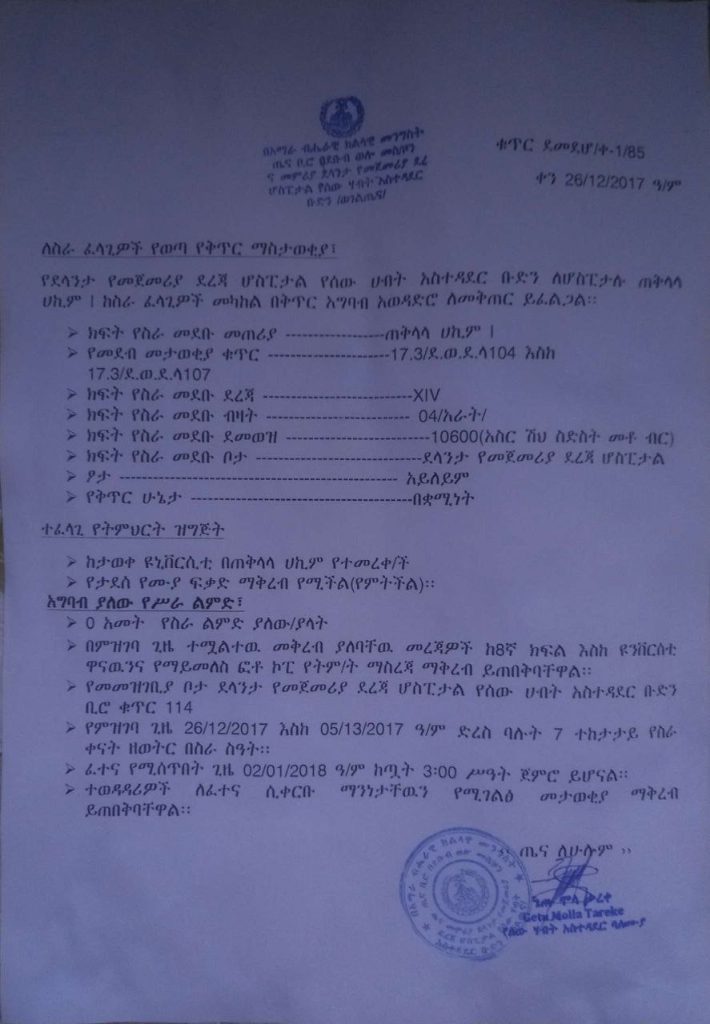 በአማራ ብሔራዊ ክልላዊ መንግስት
ጤና ቢሮ በደቡብ ወሎ መስተዳ
ና መምሪያ ደላንታ የመጀመሪያ ደረ
ሆስፒታል የሰው ሃብት አስተዳደር
ቡድን /ወገልጤና/
ቁጥር ደመደሆ/ቀ-1/85
ቀን 26/12/2017 ዓ/ም
ለስራ ፈላጊዎች የወጣ የቅጥር ማስታወቂያ፣
የደላንታ የመጀመሪያ ደረጃ ሆስፒታል የሰው ሀብት አስተዳደር ቡድን ለሆስፒታሉ ጠቅላላ
ሀኪም I ከስራ ፈላጊዎች መካከል በቅጥር አግባብ አወዳድሮ ለመቅጠር ይፈልጋል፡፡
➢ ክፍት የስራ መደቡ መጠሪያ ------------------ጠቅላላ ሀኪም I
➢ የመደብ መታወቂያ ቁጥር ----------------------17.3/ደ.ወ.ደ.ላ104 እስከ
17.3/ደ.ወ.ደ.ላ107
➢ ክፍት የስራ መደቡ ደረጃ ---------------------------XIV
➢ ክፍት የስራ መደቡ ብዛት -------------------------- 04/አራት/
➢ ክፍት የስራ መደቡ ደመወዝ --------------------------10600(አስር ሽህ ስድስት መቶ ብር)
➢ ክፍት የስራ መደቡ ቦታ ------------------------------ደላንታ የመጀመሪያ ደረጃ ሆስፒታል
➢ ፆታ -------------------------------------------------- አይለይም
➢ የቅጥር ሁኔታ ----------------------------------------በቋሚነት
ተፈላጊ የትምህርት ዝግጅት
➢ ከታወቀ ዩኒቨርሲቲ በጠቅላላ ሀኪም የተመረቀ/ች
➢ የታደሰ የሙያ ፍቃድ ማቅረብ የሚችል(የምትችል)፡፡
አግባብ ያለው የሥራ ልምድ፣
➢ 0 አመት የስራ ልምድ ያለው/ያላት
➢ በምዝገባ ጊዜ ተሟልተዉ መቅረብ ያለባቸዉ መረጃዎች ከ8ኛ ክፍል እስከ ዩንቨርስቲ
ዋናዉንና የማይመለስ ፎቶ ኮፒ የትም/ት ማስረጃ ማቅረብ ይጠበቅባቸዋል፡፡
➢ የመመዝገቢያ ቦታ ደላንታ የመጀመሪያ ደረጃ ሆስፒታል የሰው ሀብት አስተዳደር ቡድን
ቢሮ ቁጥር 114
➢ የምዝገባ ጊዜ 26/12/2017 እስከ 05/13/2017 ዓ/ም ድረስ ባሉት 7 ተከታታይ የስራ
ቀናት ዘወትር በስራ ስዓት፡፡
➢ ፈተና የሚሰጥበት ጊዜ 02/01/2018 ዓ/ም ከጧት 3፡00 ሥዓት ጀምሮ ይሆናል፡፡
➢ ተወዳዳሪዎች ለፈተና ሲቀርቡ ማንነታቸዉን የሚገልፅ መታወቂያ ማቅረብ
ይጠበቅባቸዋል፡፡
ጤና ለሁሉም ››
ጌጡ ሞላ ታረቀ
Getu Molla Tareke
የሰው ሃብት አስተዳደር ባለሙያ